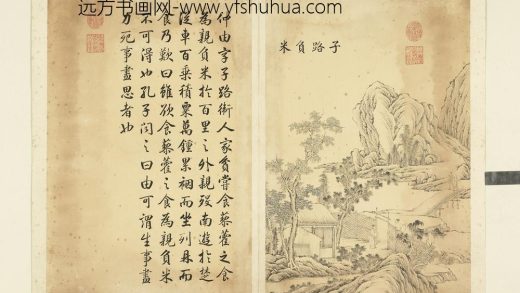 远方书画网-www.yfshuhua.com
子路負米
仲由字子路衛人家貧嘗食藜藿之食
為親負米於百里之外親歿南遊於楚
從車百乘積粟萬鍾累裀而坐列鼎而
食乃歎曰雖欲食藜藿之食為親負米
不可得也孔子聞之曰由可謂生事盡
力死事盡思者也